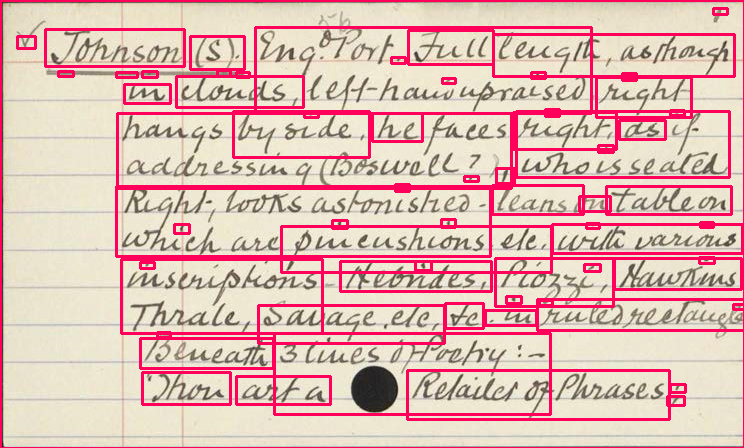 Johnson (S). Eng. Port. Full length, as though
in clouds, left hand upraised right
hangs by side, he faces right, as if
addressing (Boswell?) who is seated
Right, looks astonished - leans on table on
which are pincushions etc. with various
inscriptions - Hebrides, Piozzi, Hawkins
Thrale, Savage, etc, &c. in ruled rectangle
Beneath 3 lines of Poetry :-
"Thou art a Retailer of Phrases;